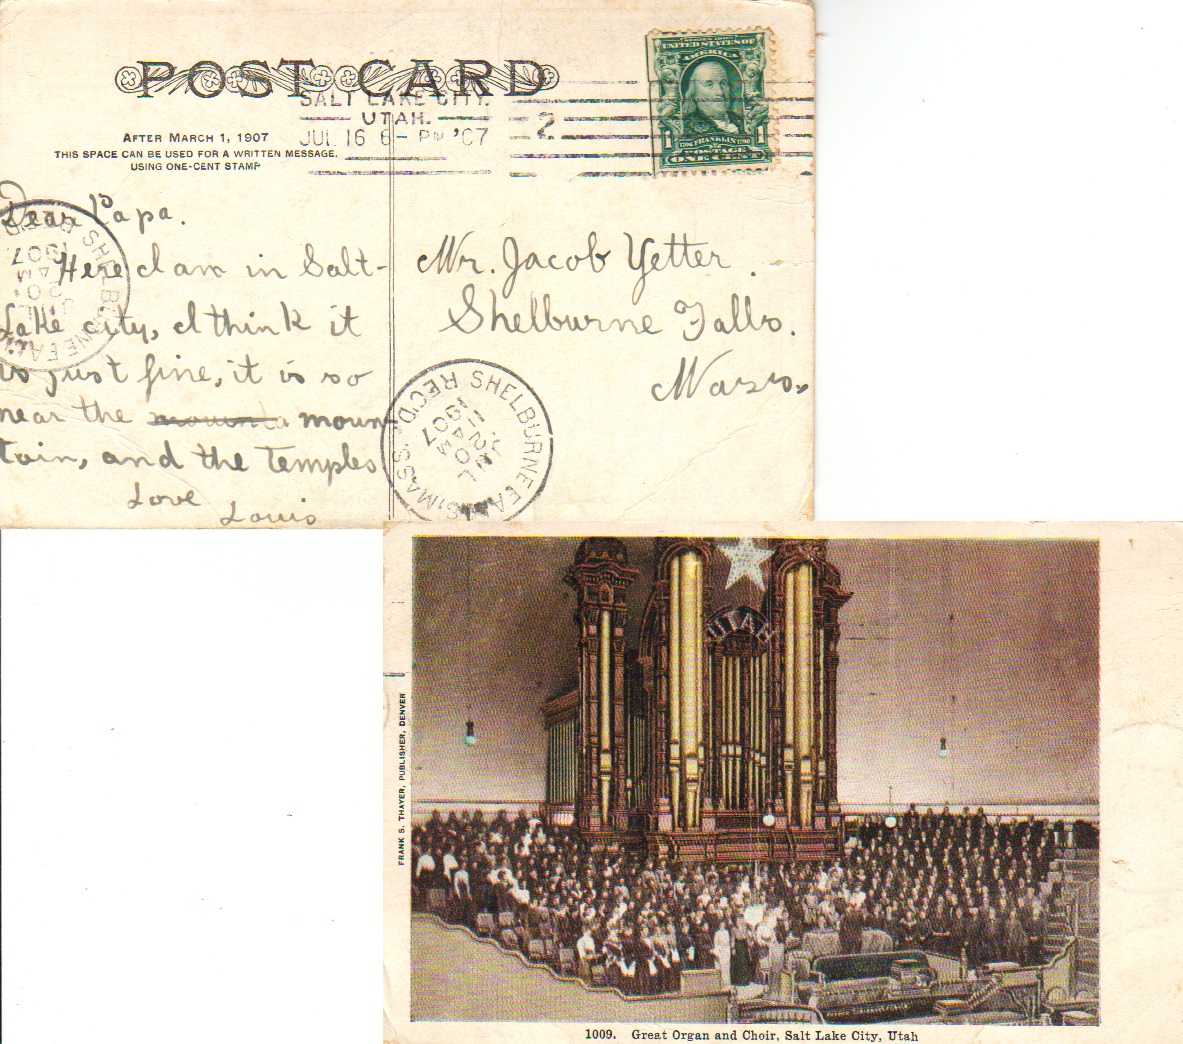 POST CARD
SALT LAKE CITY.
UTAH.
JUL 16 6 - PM '07
2
UNITED STATES OF
AMERICA
1 1706 FRANKLIN 1790 1
POSTAGE
ONE CENT
AFTER MARCH 1, 1907
THIS SPACE CAN BE USED FOR A WRITTEN MESSAGE.
USING ONE-CENT STAMP
Dear Papa.
Here I am in Salt-
Lake city, I think it
is just fine, it is so
near the moun
tain, and the temples
Love
Louis
SHELBURNE FALLS
JUL
20
AM
1907
Mr. Jacob Yetter.
Shelburne Falls.
Mass.
SHELBURNE FALLS, MASS. REC'D.
JUL
20
11 AM
1907
UTAH
FRANK S. THAYER, PUBLISHER, DENVER
1009. Great Organ and Choir, Salt Lake City, Utah